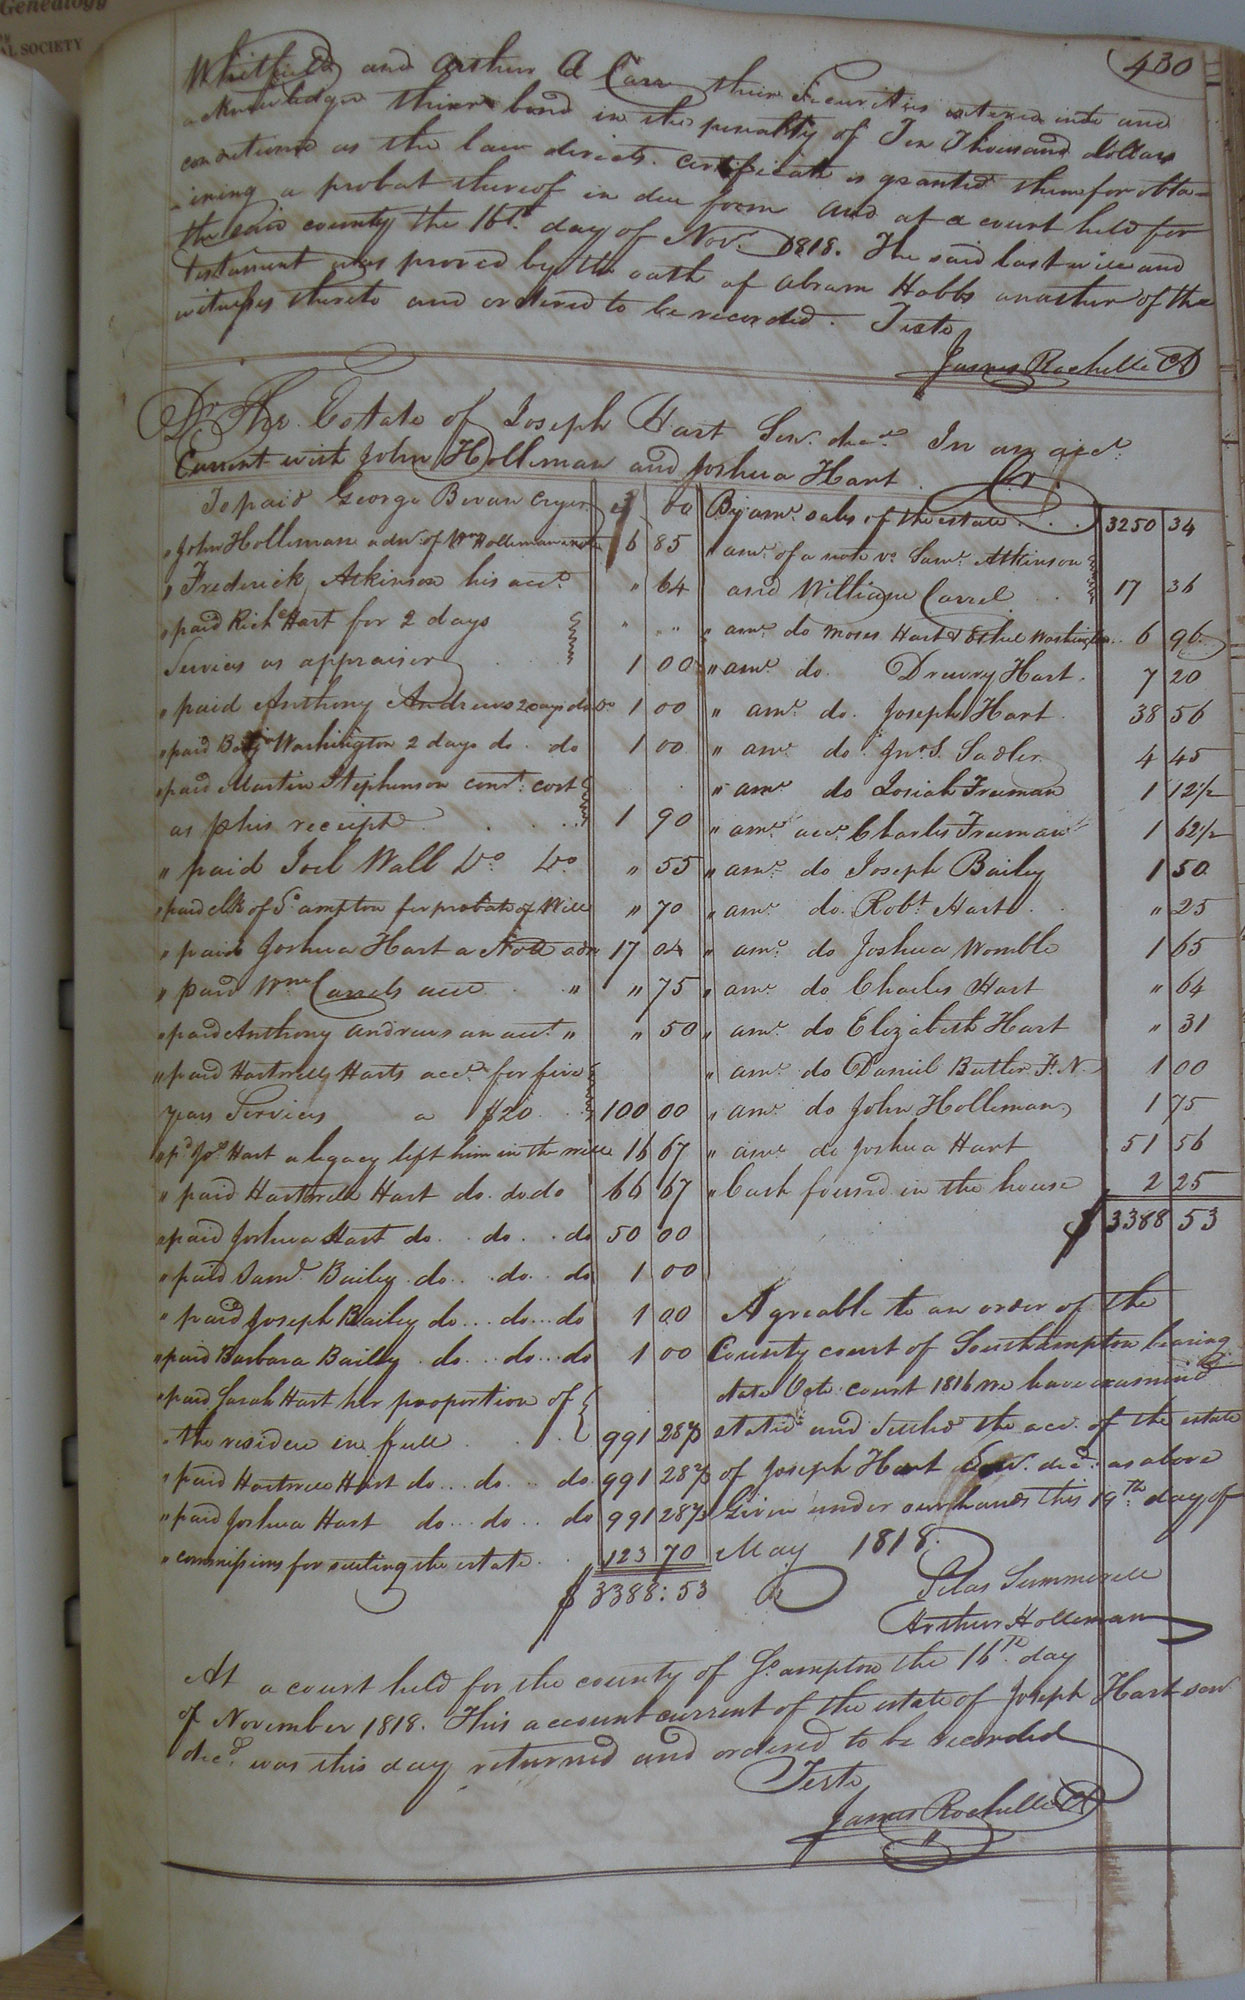 Genealogy
AL SOCIETY
430
Whitfield and Arthur A Carr their Securities entered into and
acknowledge their bond in the penalty of Ten Thousand dollars
conditioned as the law directs. Certificate is granted them for obta-
-ining a probat thereof in due form and at a court held for
the said county the 16th. day of Novr. 1818. The said last will and
testament was proved by the oath of Abram Hobbs another of the
witness thereto and ordered to be recorded. Teste
James Rochelle Ck
Dr. The Estate of Joseph Hart Senr. decd. In an acct.
Current with John Holleman and Joshua Hart. Cr.
To paid George Bevan Cryer 00
By amt. sales of the estate . . . 3250 34
" John Holleman adm. of Wm Holleman 6 85
" amt. of a note vs. Saml. Atkinson
" Frederick Atkinson his acct. " 64
and William Carrel . . 17 36
" paid Richd Hart for 2 days " " "
" amt. do Moses Hart & Ethel Washington . . 6 96
Services as appraiser . . 1 00
" amt. do. Drewry Hart. 7 20
" paid Anthony Andrews 2 days do Do 1 00
" amt. do. Joseph Hart. 38 56
" paid Benj Washington 2 days do. do 1 00
" amt. do Jno. S. Sadler. 4 45
" paid Martin Stephenson cont. cost
" amt. do Josiah Freeman 1 12 1/2
as p his receipt . . . . 1 90
" amt. acct. Charles Freeman 1 62 1/2
" paid Joel Wall Do. Do. " 55
" amt. do Joseph Bailey 1 50
" paid clk of So. ampton for probate of Will " 70
" amt. do. Robt. Hart . " 25
" paid Joshua Hart a Note 17 04
" amt. do Joshua Womble 1 65
" paid Wm. Carrels acct. . " " 75
" amt. do Charles Hart " 64
" paid Anthony Andrews an acct. " " 50
" amt. do Elizabeth Hart " 31
" paid Hartwell Harts acct. for five
" amt. do Daniel Butler F. N. 1 00
years Services a $20 . . 100 00
" amt. do John Holleman 1 75
" pd. Jos. Hart a legacy left him in the will 16 67
" amt. do Joshua Hart 51 56
" paid Hartwell Hart do. do do 66 67
" Cash found in the house 2 25
" paid Joshua Hart do. . do. . do 50 00
$ 3388 53
" paid Saml. Bailey do. . do. . do 1 00
" paid Joseph Bailey do . . . do . . do 1 00
Agreable to an order of the
" paid Barbara Bailey . do . . do . . do 1 00
County court of Southampton bearing
" paid Sarah Hart her proportion of
date Octo. court 1816 we have examined
the residue in full . . . . . 991 28 7/8
stated and settled the acct. of the estate
" paid Hartwell Hart do . . . do . . do 991 28 7/8
of Joseph Hart Senr. decd. as above
" paid Joshua Hart do . . . do . . do 991 28 7/8
Given under our hands this 19th. day of
" commissions for settling the estate . . 123 70
May 1818.
$ 3388: 53
Silas Summerell
Arthur Holleman
At a court held for the county of So. ampton the 16th. day
of November 1818. This account current of the estate of Joseph Hart senr
decd. was this day returned and ordered to be recorded
Teste
James Rochelle Ck